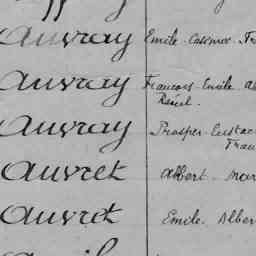 Auvray Emile Casimir
Auvray François Emile
Raoul
Auvray Prosper Eustac
Fran
Auvret Albert Mar
Auvret Emile Alber